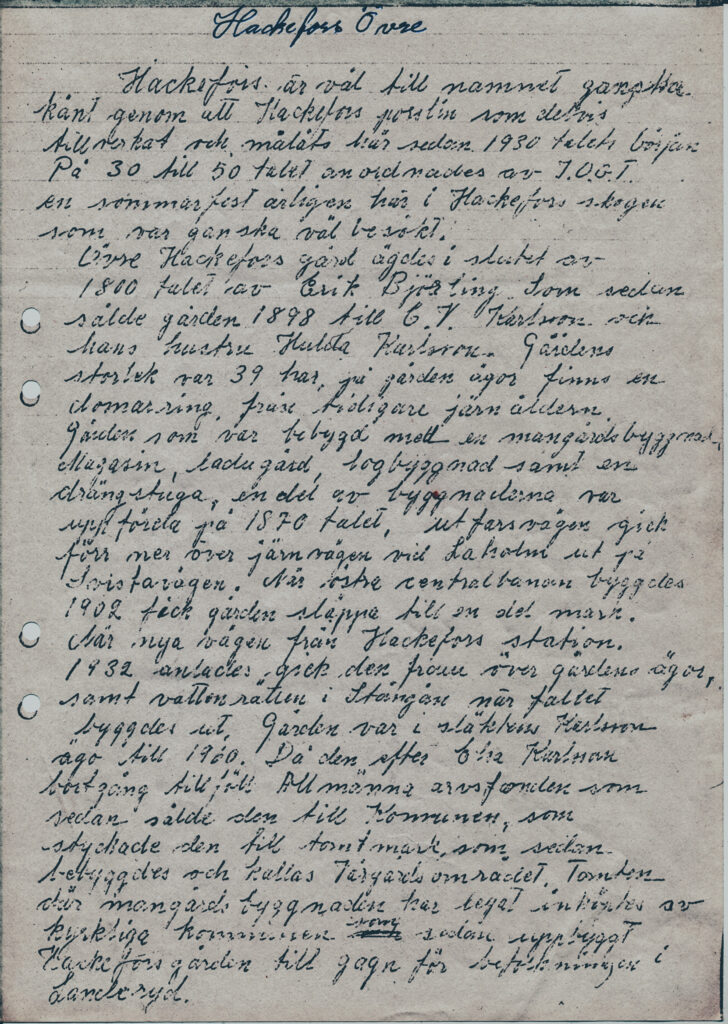 Hackefors Övre
Hackefors är väl till namnet ganska
känt genom att Hackefors porslin som delvis
tillverkat och målats här sedan 1930 talets början
På 30 till 50 talet anordnades av I.O.G.T.
en sommarfest årligen här i Hackefors skogen
som var ganska väl besökt.
Övre Hackefors gård ägdes i slutet av
1800 talet av Erik Björling Som sedan
sålde gården 1898 till C.V. Karlsson och
hans hustru Hulda Karlsson. Gårdens
storlek var 39 har, på gården ägor finns en
domarring från tidigare järnåldern.
Gården som var bebygd med en mangårdsbyggnad,
Magasin, ladugård, logbyggnad samt en
drängstuga, en del av byggnaderna var
uppförda på 1870 talet, utfarsvägen gick
förr ner över järnvägen vid Laholm ut på
Svistavägen. När östra centralbanan byggdes
1902 fick gården släppa till en del mark.
När nya vägen från Hackefors station.
1932 anlades gick den fram över gårdens ägor,
samt vattenrätten i Stångån när fallet
byggdes ut. Gården var i släktens Karlsson
ägo till 1960. Då den efter Karlsson
bortgång tillföll Allmänna arvsfonden som
sedan sålde den till Kommunen, som
styckade den till tomtmark, som sedan
bebyggdes och kallas Tårgårdsområdet. Tomten
där mangårds byggnaden har legat inköptes av
kyrkliga kommunen som sedan uppbyggt
Hackeforsgården till gagn för befolkningen i
Landeryd.